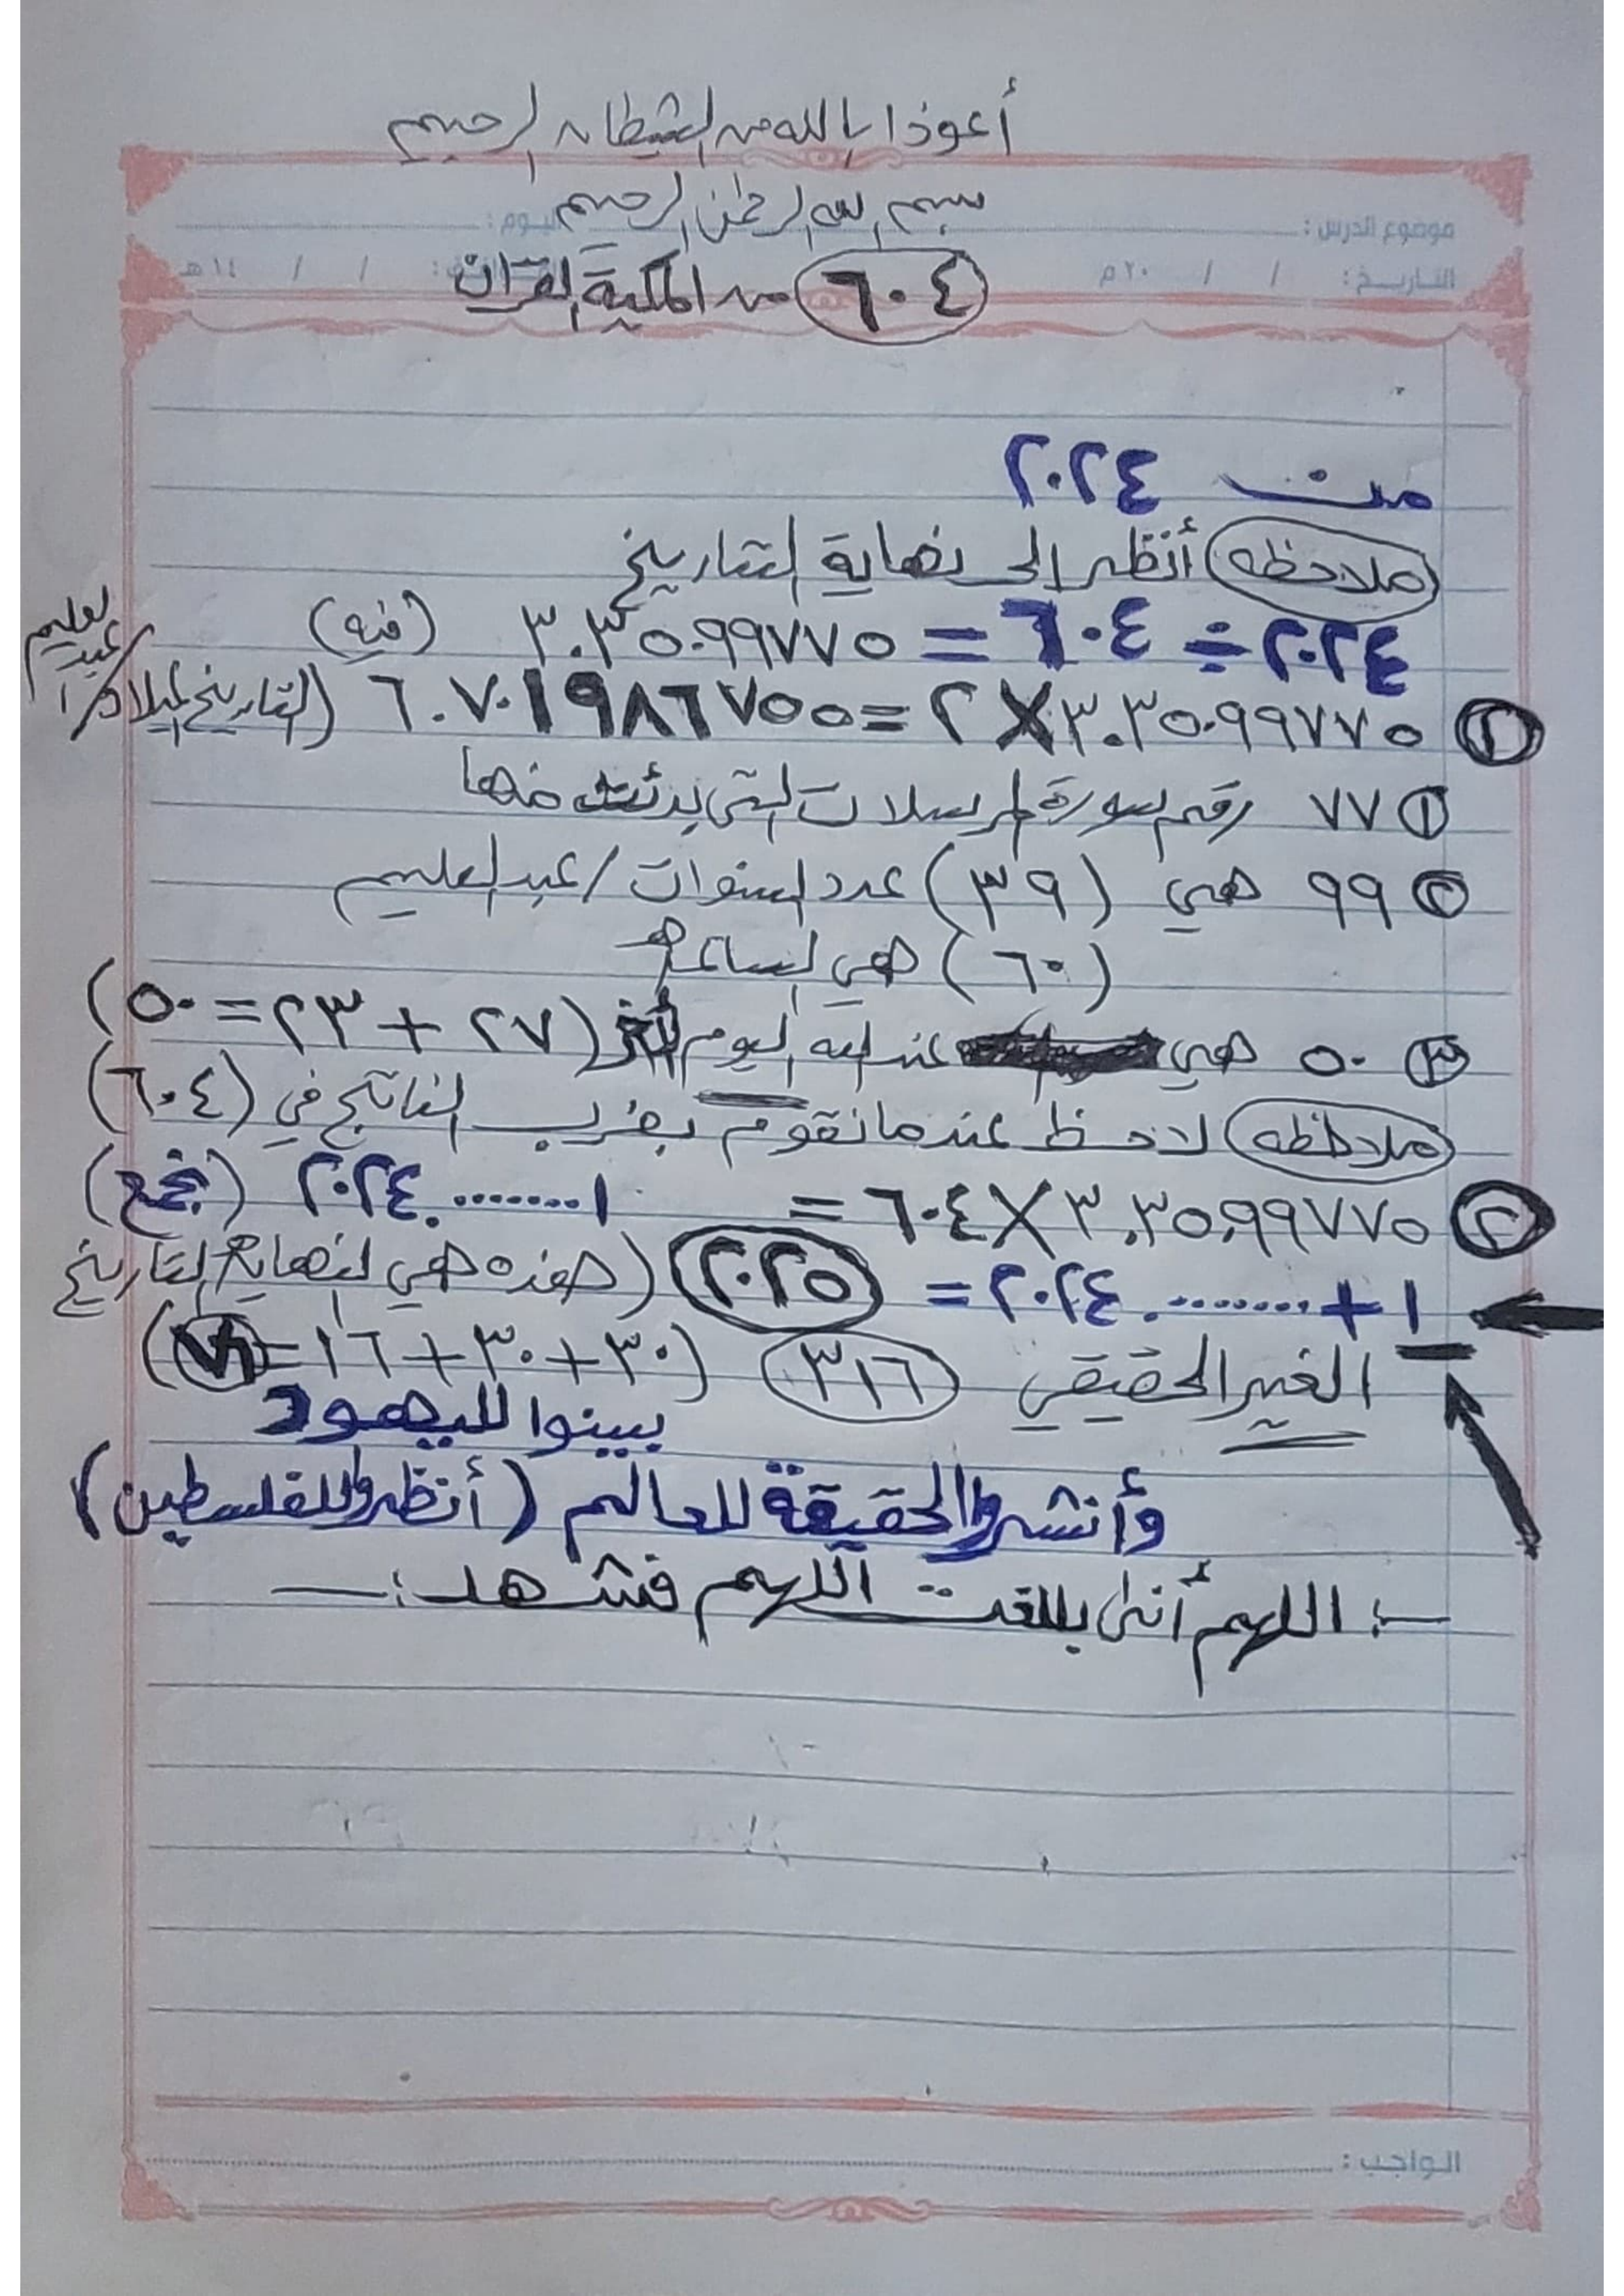 أعوذا بالله من الشيطان الرجيم
بسم الله الرحمٰن الرحيم
موضوع الدرس : اليوم :
التاريخ : / / ٢٠م / / ١٤هـ
٦٠٤ من المكية القرآن
من ٢٠٢٤
ملاحظه أنظر إلى نهاية التاريخ
٢٠٢٤ ÷ ٦٠٤ = ٣.٣٥٠٩٩٧٧٥ (فيه)
٢ ٣.٣٥٠٩٩٧٧٥ × ٢ = ٦.٧٠١٩٨٦٧٥٥ (التاريخ الميلاد / عبد العليم
١ ٧٧ رقم سورة المرسلات التي بدئت منها
٢ ٩٩ هي (٣٩) عدد السنوات / عبد العليم
(٦٠) هي الساعة
٣ ٥٠ هي عند الله اليوم (٢٧ + ٢٣ = ٥٠)
ملاحظه لاحظ عندما نقوم بضرب الناتج في (٦٠٤)
٢ ٣.٣٥٠٩٩٧٧٥ × ٦٠٤ = ٢٠٢٤.٠٠٠٠٠٠٠١ (نجمع)
١ + ٢٠٢٤.٠٠٠٠٠٠٠ = ٢٠٢٥ (هذه هي النهاية التاريخ
الغير الحقيقي ٣١٦ (٣٠ + ٣٠ + ١٦ = ٧٦)
بينوا لليهود
وأنشروا الحقيقة للعالم (أنظروا للفلسطين)
:ـ اللهم أني بلغت اللهم فشهد :ـ
الواجب :